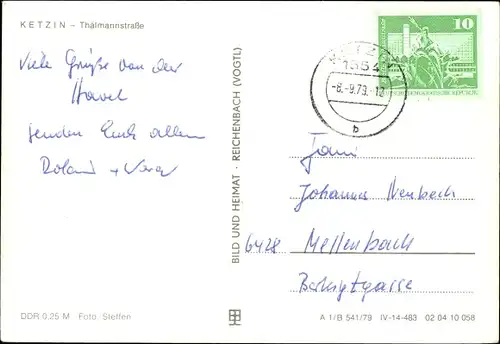 KETZIN – Thälmannstraße
Viele Grüße von der
Havel
senden Euch allen
Roland + Vera
DDR 0,25 M Foto: Steffen
BILD UND HEIMAT · REICHENBACH (VOGTL)
10
DEMOKRATISCHE REPUBLIK
KETZIN
1554
-8.-9.79.-12
b
Fam.
Johanna
6428 Mellenbach
A 1/B 541/79 IV-14-483 02 04 10 058